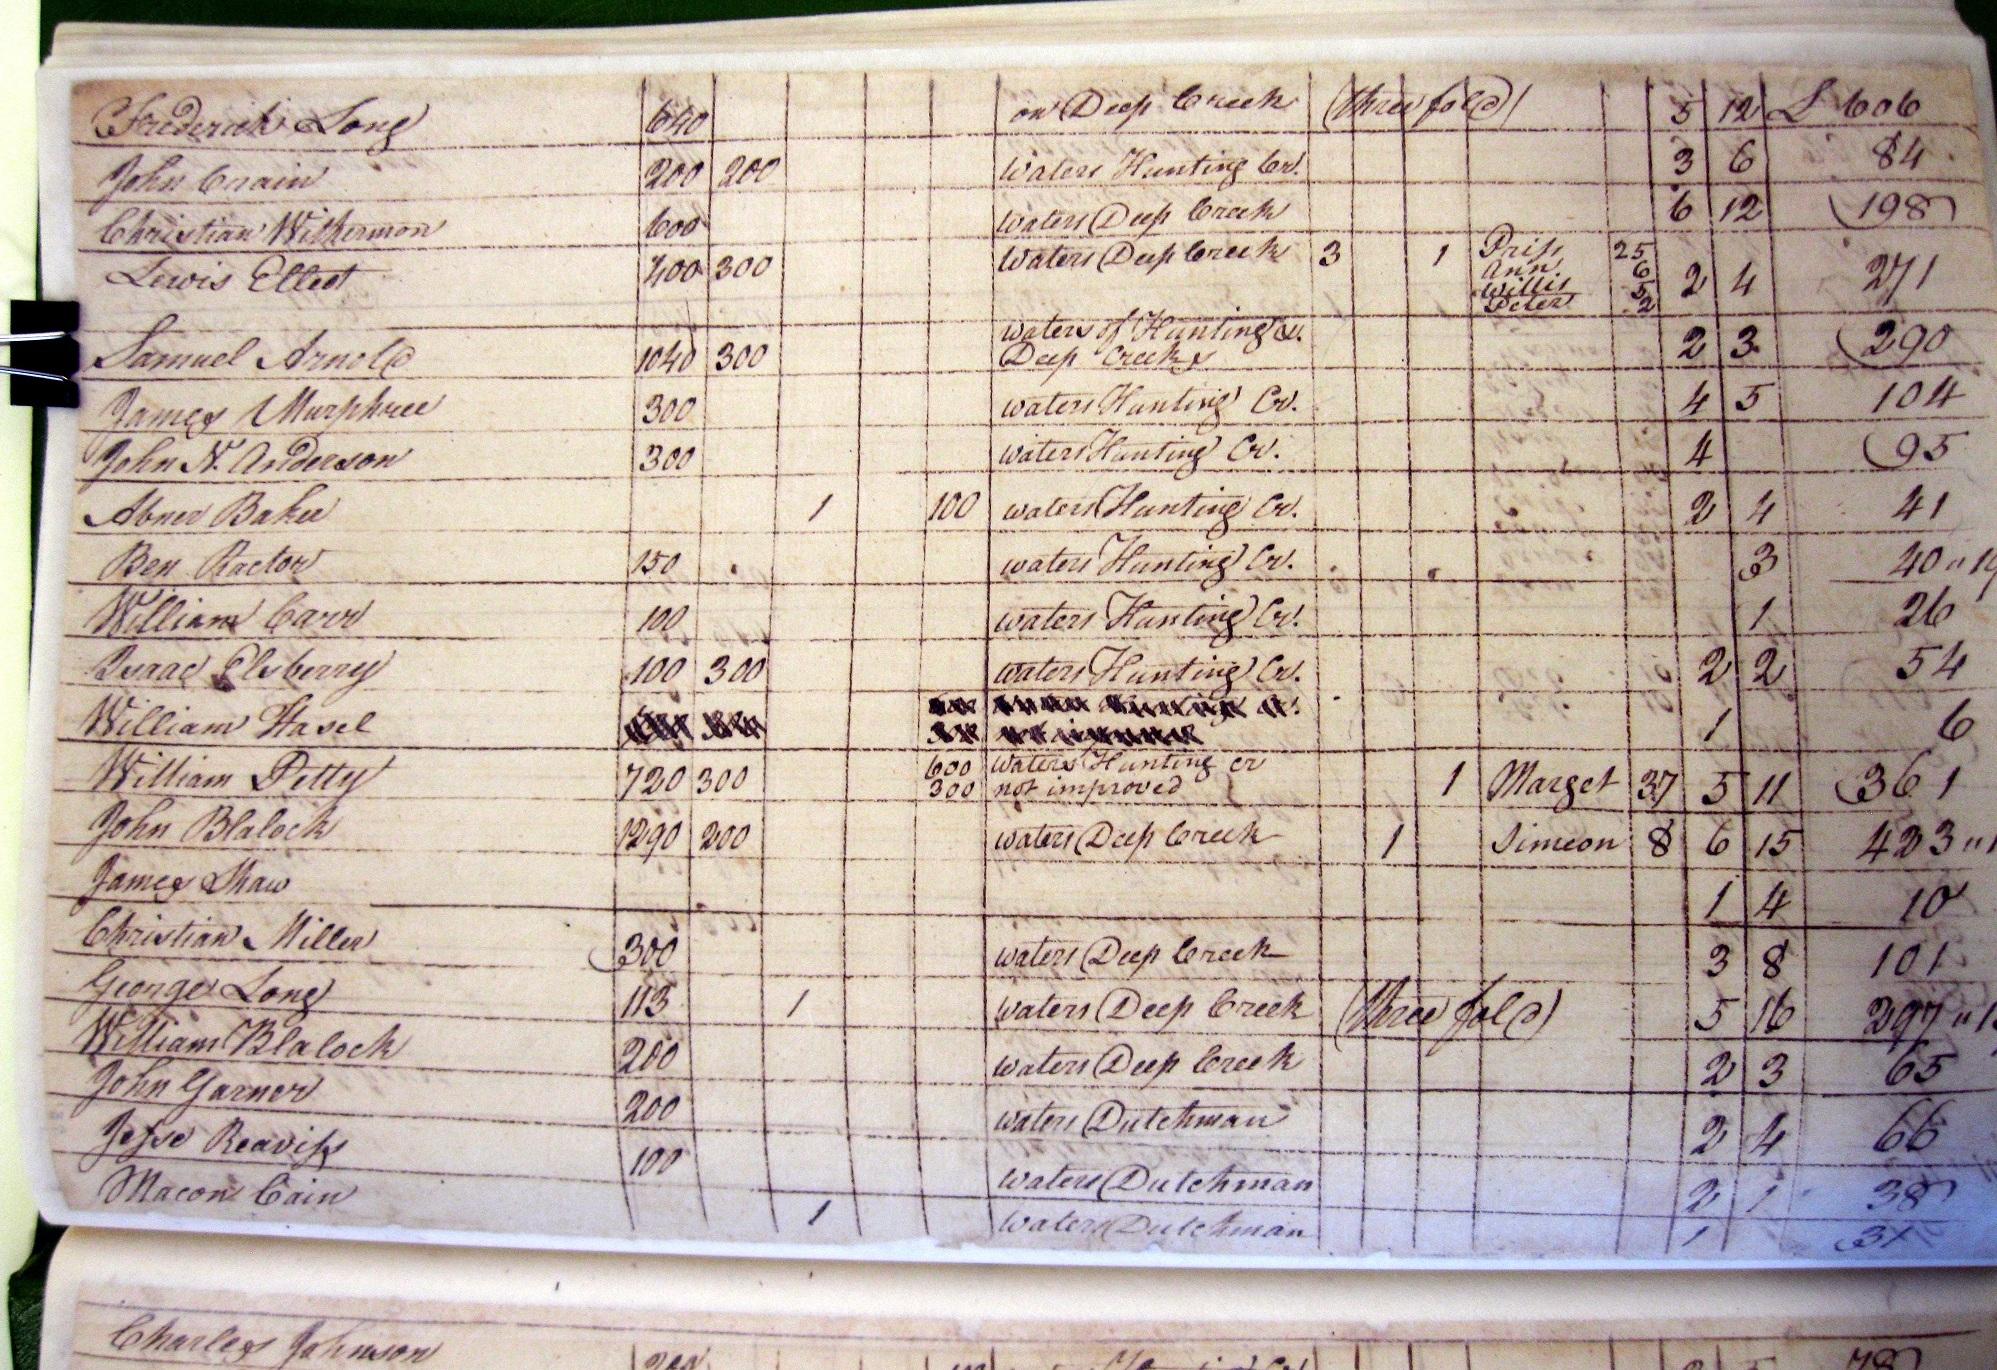 Frederick Long 640 on Deep Creek (three fold) 5 12 L 606
John Crain 200 200 waters Hunting Cr. 3 6 84
Christian Wilhermon 600 waters Deep Creek 6 12 198
Lewis Elleot 400 300 waters Deep Creek 3 1 Priss 25 2 4 271
Ann 6
Willis 5
Peter 2
Samuel Arnold 1040 300 waters of Hunting & 2 3 290
Deep Creeks
James Murphree 300 waters Hunting Cr. 4 5 104
John N. Anderson 300 waters Hunting Cr. 4 95
Abner Baker 1 100 waters Hunting Cr. 2 4 41
Ben Ractor 150 waters Hunting Cr. 3 40 "
William Carr 100 waters Hunting Cr. 1 26
Isaac Elsberry 100 300 waters Hunting Cr. 2 2 54
William Hasel 1 6
William Petty 720 300 600 waters Hunting cr 1 Marget 37 5 11 361
300 not improved
John Blalock 1290 200 waters Deep Creek 1 Simeon 8 6 15 423 "
James Shaw 1 4 10
Christian Miller 300 waters Deep Creek 3 8 101
George Long 113 1 waters Deep Creek (three fold) 5 16 297 "
William Blalock 200 waters Deep Creek 2 3 65
John Garner 200 waters Dutchman 2 4 66
Jesse Reaviss 100 waters Dutchman 2 1 38
Macon Cain 1 waters Dutchman 1 31
Charles Johnson 200